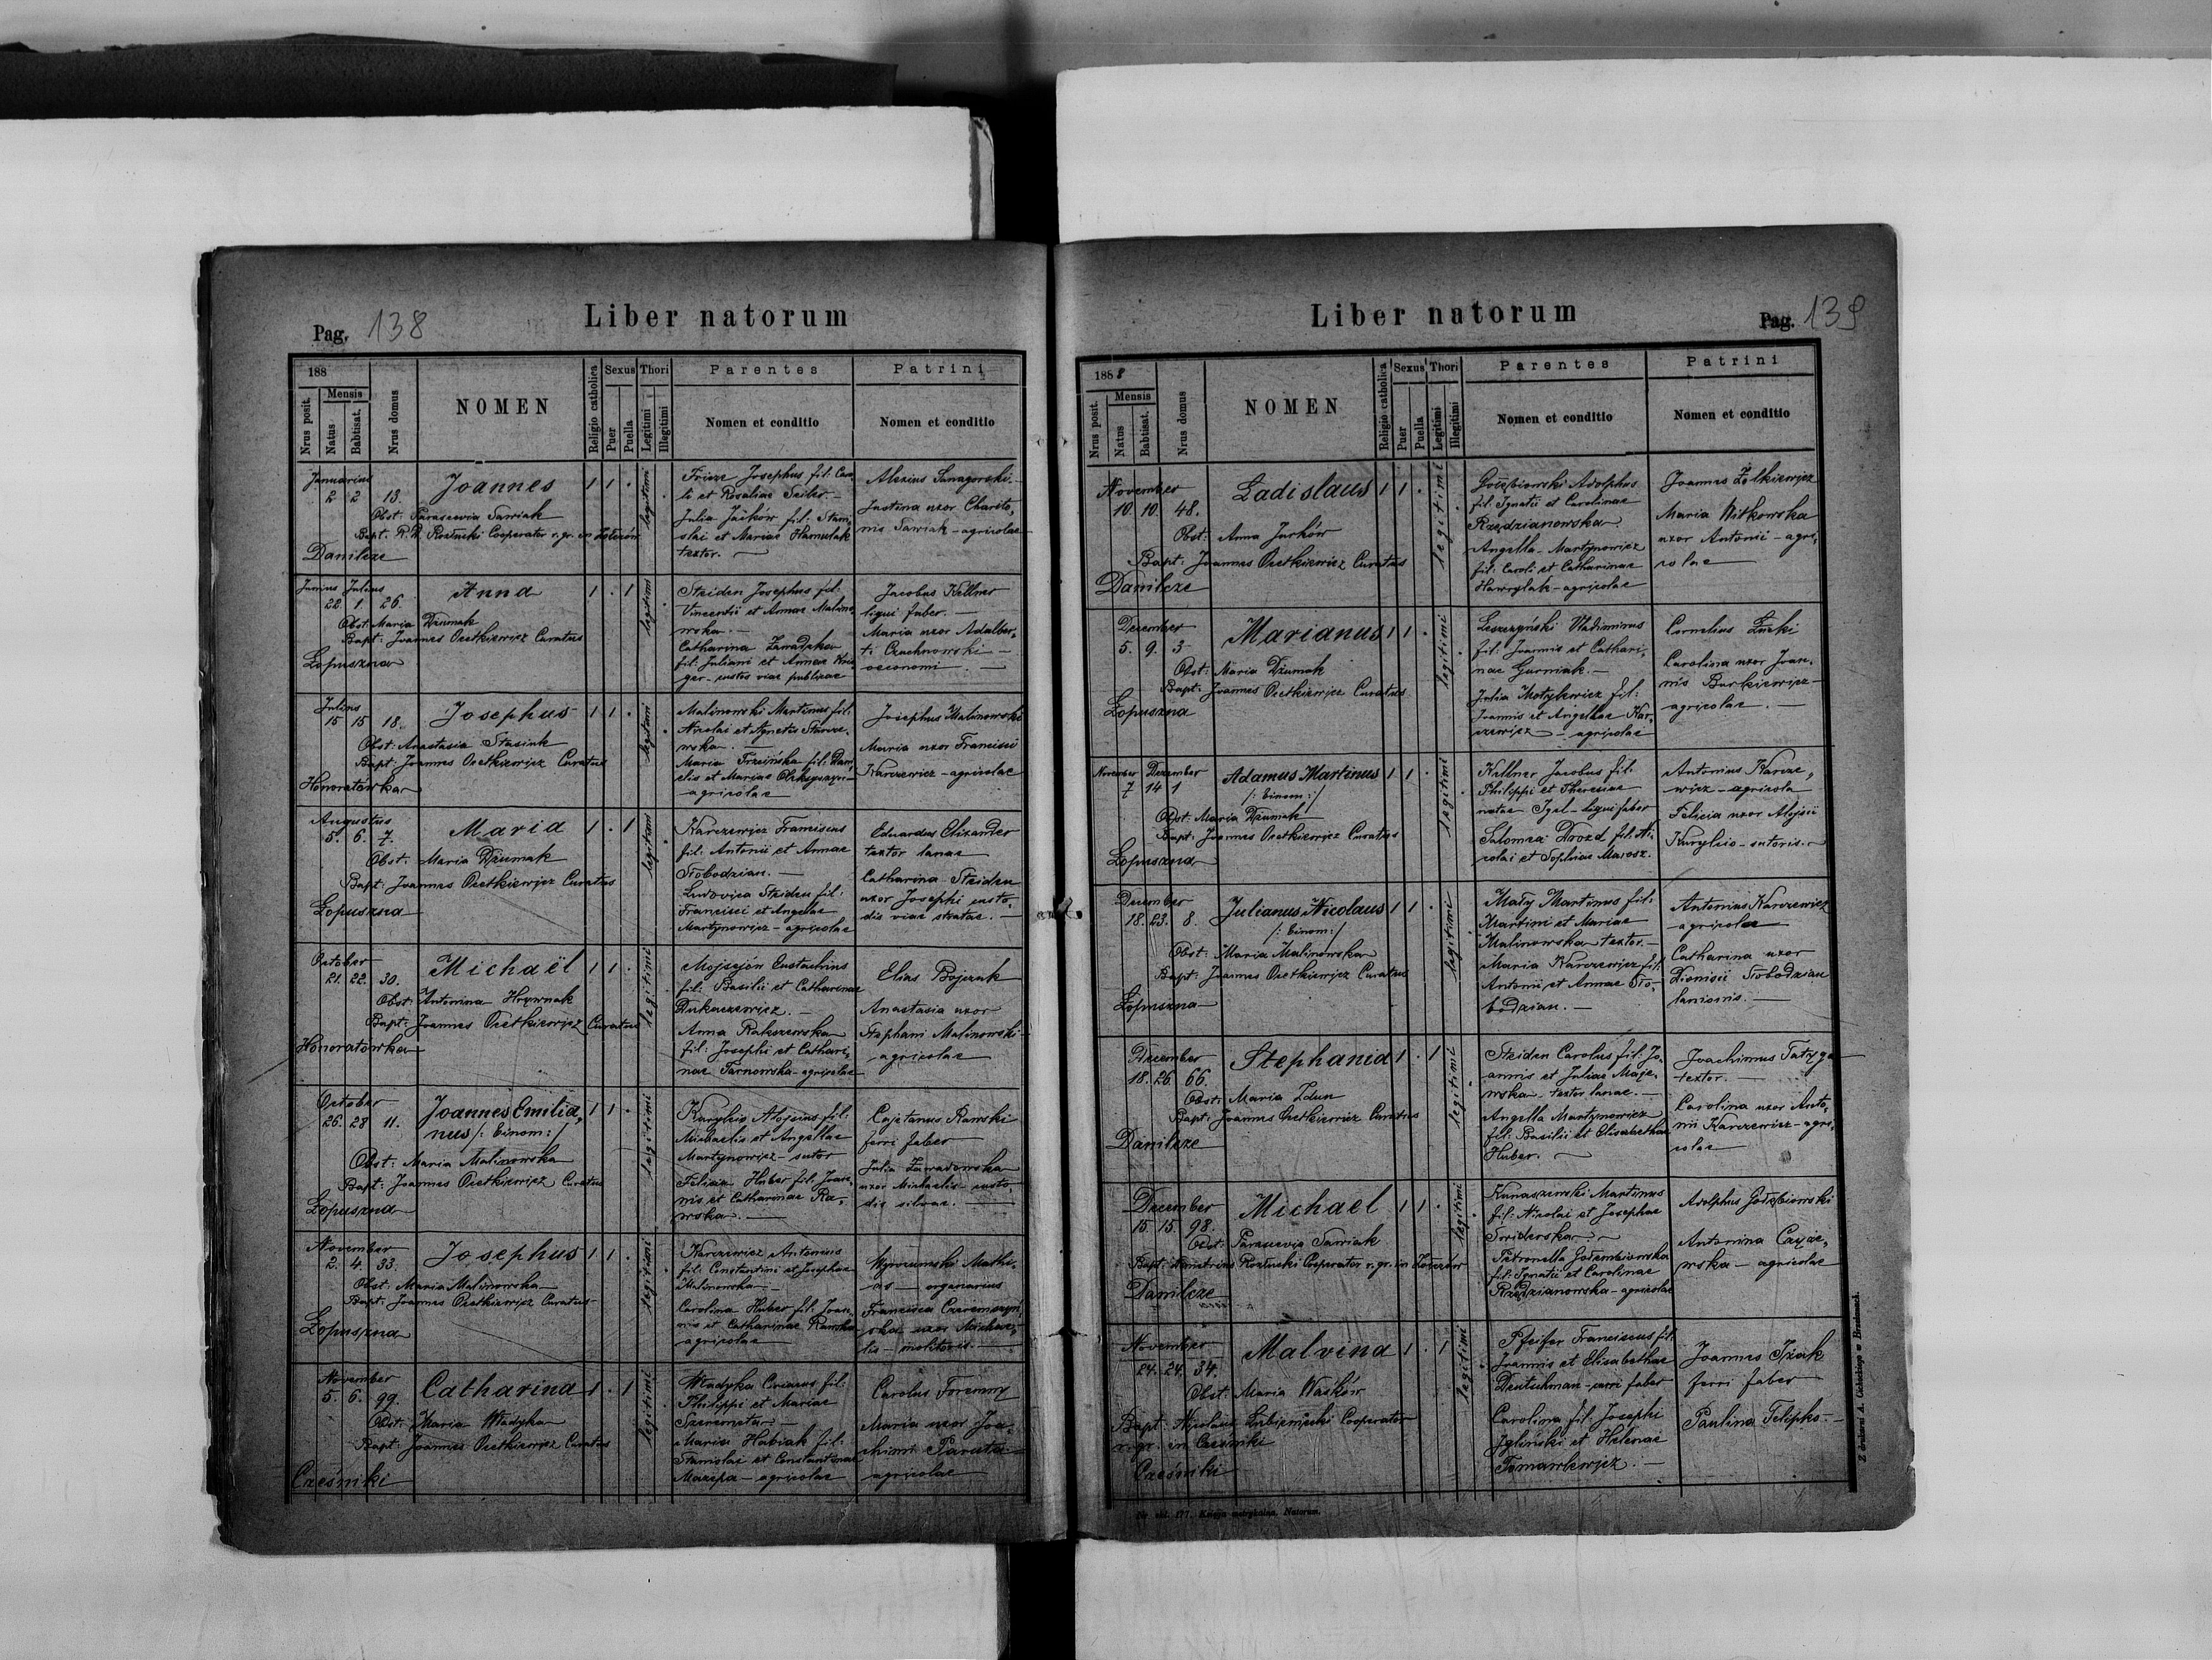 Pag. 138
Liber natorum
188
Nrus posit.
Mensis
Natus
Babtisat.
Nrus domus
NOMEN
Religio catholica
Sexus
Puer
Puella
Thori
Legitimi
Illegitimi
Parentes
Nomen et conditio
Patrini
Nomen et conditio
Januarius
2 2 13.
Joannes
1 1 .
legitimi
Obst: Parascevia Sawiak
Danilcze
Julia Jaśków fil: Stani
slai et Mariae Hamulak
textor.
Justina uxor Charito,
nis Sawiak - agricolae
Junius Julius
22 1. 26.
Anna
1 . 1
legitimi
Obst: Maria Dziumak
Bapt: Joannes Ocetkiewicz Curatus
Łopuszna
Steiden Josephus fil:
Vincentii et Annae Malino
wska. -
Catharina
fil: Juliani et Annae
ger - custos viae publicae
Jacobus Kellner
ligni faber. -
Maria uxor Adalber,
ti Czechnowski -
oeconomi. -
Julius
15 15 18.
Josephus
1 1 .
legitimi
Obst: Anastasia Stasiuk
Bapt: Joannes Ocetkiewicz Curatus
Honoratówka
Malinowski Martinus fil:
Nicolai et Agnetis
wska. -
Maria
agricolae
Josephus Malinowski
Maria uxor Francisci
Karczewicz - agricolae
Augustus
5. 6. 7.
Maria
1 . 1
legitimi
Obst: Maria Dziumak
Bapt: Joannes Ocetkiewicz Curatus
Łopuszna
Karczewicz Franciscus
fil: Antonii et Annae
Słobodzian. -
Ludovica Steiden fil:
Francisci et Angelae
Martynowicz - agricolae
Eduardus Elixander
textor lanae
Catharina Steiden
uxor Josephi custo,
dis viae stratae. -
October
21. 22. 30.
Michaël
1 1 .
legitimi
Obst: Antonina Hrywnak
Bapt: Joannes Ocetkiewicz Curatus
Honoratówka
Mojsejón Eustachius
fil: Basilii et Catharinae
Dukaczewicz. -
Anna Rakszewska
fil: Josephi et Cathari,
nae Tarnowska - agricolae
Elias Bojczuk
Anastasia uxor
Stephani Malinowski -
agricolae
October
26. 28 11.
Joannes Emilia,
nus /: Binom: /
1 1 .
legitimi
Obst: Maria Malinowska
Bapt: Joannes Ocetkiewicz Curatus
Łopuszna
Kurylcio Alojsius fil:
Michaelis et Angellae
Martynowicz - sutor
Felicia Huber fil: Joan,
nis et Catharinae Ra,
wska. -
Cajetanus Rawski
ferri faber
Julia Zawadowska
uxor Michaelis - custo,
dis silvae. -
November
2. 4. 33.
Josephus
1 1 .
legitimi
Obst: Maria Malinowska
Bapt: Joannes Ocetkiewicz Curatus
Łopuszna
Karczewicz Antonius
fil: Constantini et Josephae
Malinowska -
Carolina Huber fil: Joan,
nis et Catharinae Rawska
agricolae
Wyrozumski Mathi,
as - organarius
Francisca
uxor Michae,
lis - molitoris. -
November
5. 6. 99.
Catharina
1 . 1
legitimi
Obst: Maria Władyka
Bapt: Joannes Ocetkiewicz Curatus
Cześniki
Władyka fil:
Philippi et Mariae
Szeremeta -
Maria Habiak fil:
Stanislai et Constantinae
Mazepa - agricolae
Carolus Foremny
Maria uxor Joa,
chimi Paruta -
agricolae
Liber natorum
Pag. 139
1888
Nrus posit.
Mensis
Natus
Babtisat.
Nrus domus
NOMEN
Religio catholica
Sexus
Puer
Puella
Thori
Legitimi
Illegitimi
Parentes
Nomen et conditio
Patrini
Nomen et conditio
November
10. 10. 48.
Ladislaus
1 1 .
legitimi
Obst: Anna Jurków
Bapt: Joannes Ocetkiewicz Curatus
Danilcze
Gołębiowski Adolphus
fil: Ignatii et Carolinae
Rzędzianowska
Angella - Martynowicz
fil: Caroli et Catharinae
Hawrylak - agricolae
Joannes Żółkiewicz
Maria Witkowska
uxor Antonii - agri,
colae
December
5. 9. 3
Marianus
1 1 .
legitimi
Obst: Maria Dziumak
Bapt: Joannes Ocetkiewicz Curatus
Łopuszna
Leszczyński Vladimirus
fil: Joannis et Cathari,
nae Gurniak. -
Julia Motylewicz fil:
Joannis et Angellae Kar,
czewicz - agricolae
Cornelius
Carolina uxor Joan,
nis Burkiewicz -
agricolae. -
November December
7 14 1
Adamus Martinus
/: Binom: /
1 1 .
legitimi
Obst: Maria Dziumak
Bapt: Joannes Ocetkiewicz Curatus
Łopuszna
Kellner Jacobus fil:
Philippi et Theresiae
natae Igel - ligni faber
Salomea Drozd fil: Ni
colai et Sophiae Marosz.
Antonius Karcze,
wicz - agricola
Felicia uxor Alojsii
Kurylcio - sutoris. -
December
18. 23. 8.
Julianus Nicolaus
/: Binom: /
1 1 .
legitimi
Obst: Maria Malinowska
Bapt: Joannes Ocetkiewicz Curatus
Łopuszna
Mały Martinus fil:
Martini et Mariae
Malinowska textor. -
Maria Karczewicz fil:
Antonii et Annae Sło,
bodzian. -
Antonius Karczewicz
agricolae
Catharina uxor
Dionisii Słobodzian
lanionis. -
December
18. 26. 66.
Stephania
1 . 1
legitimi
Obst: Maria Zdun
Bapt: Joannes Ocetkiewicz Curatus
Danilcze
Steiden Carolus fil: Jo,
annis et Juliae Maje,
wska textor lanae. -
Angella Martynowicz
fil: Basilii et Elisabethae
Huber. -
Joachimus Tatryga
textor. -
Carolina uxor Anto,
nii Karczewicz - agri,
colae
December
15 15. 98.
Michael
1 1 .
legitimi
Obst: Parascevia Sawiak
Danilcze
Kunaszewski Martinus
fil: Nicolai et Josephae
Świderska. -
Petronella Gołembiowska
fil: Ignatii et Carolinae
Rzędzianowska - agricolae
Adolphus Gołębiowski
Antonina
wska - agricolae
November
24. 24. 34.
Malvina
1 . 1
legitimi
Obst: Maria Waśków
Bapt: Nicolaus Cooperator
r. gr. in Cześniki
Cześniki
Pfeifer Franciscus fil:
Joannis et Elisabethae
Deutschman - ferri faber
Carolina fil: Josephi
Jgliński et Helenae
Tomaszkewicz. -
Joannes Iżak
ferri faber
Paulina Felipko. -
177. Księga metrykalna. Natorum.
Z drukarni A. w Brzeżanach.